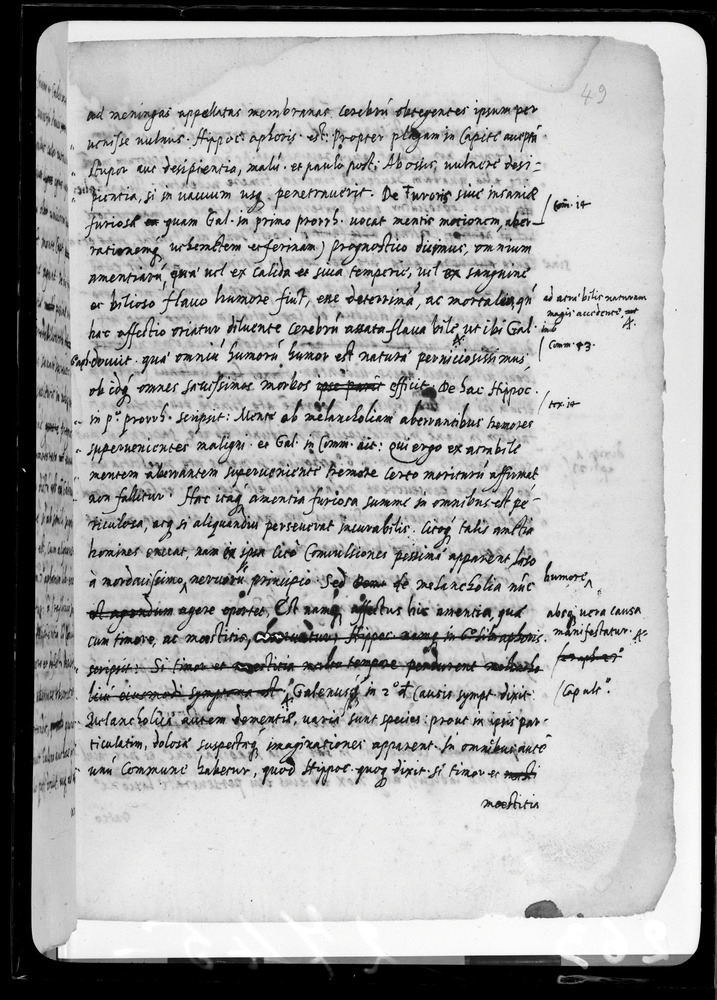 49
ad meningas appellatas membranas cerebrũ obtegentes ipsum per
uenisse uulnus. Hippoc. aphoris. est: Propter plagam in Capite acceptã
stupor aut desipientia, malũ. et paulo post. Ab ossis uulnere desi-
pientia, si in uacuum usq; penetrauerit. De Furoris siue insaniæ
furiosæ quam Gal. in primo prorrh. uocat mentis motionem, aber-
rationemq; uehemẽtem et ferinam) prognostico dicimus, omnium
amentiarũ, quæ uel ex calida et sicca temperie, uel ex sanguine
et bilioso flauo humore fiũt, esse deterrimã, ac mortalẽ, qñ
hæc affectio oriatur diluente cerebrũ assata flaua bile, ut ibi Gal.
docuit. quæ omniũ humorũ humor est natura perniciosissimus,
ob idq; omnes sæuissimos morbos ipse parit efficit. De hac Hippoc.
in p.º prorrh. scripsit: Mente ob melancholiam aberrantibus tremores
superuenientes maligni. et Gal. in Comm. ait: qui ergo ex atrabile
mentem aberrantem superueniente tremore certo moriturũ affirmat
non fallitur. Hæc itaq; amentia furiosa summe in omnibus est pe-
riculosa, atq; si aliquandiu perseuerat incurabilis. Citoq; talis amẽtia
homines enecat, nam in ipsa cito Conuulsiones pessimæ apparent læso
à mordacissimo, neruorũ principio. Sed de melancholia nũc
est agendum agere oportet, Est namq; affectus hic amentia, quæ
cum timore, ac mœstitia, Hippoc. namq; in 6.º lib. aphoris.
scripsit: Si timor et mœstitia multo tempore perdurent melancho
licũ eiusmodi symptoma est Galenusq; in 2.º d̃ Causis sympt. dixit:
Melancholicæ autem dementiæ, uariæ sunt species: prout in ipsis par-
ticulatim, dolosæ suspectæq; imaginationes apparent. In omnibus autẽ
unũ Commune habetur, quod Hippoc. quoq; dixit. si timor et mœsti
mœstitia
Com̃. 14
ad atræ bilis naturam
magis accedente,
Comm. 43.
tex. 14
humore,
absq; uera causa
manifestatur.
Cap. ult.º